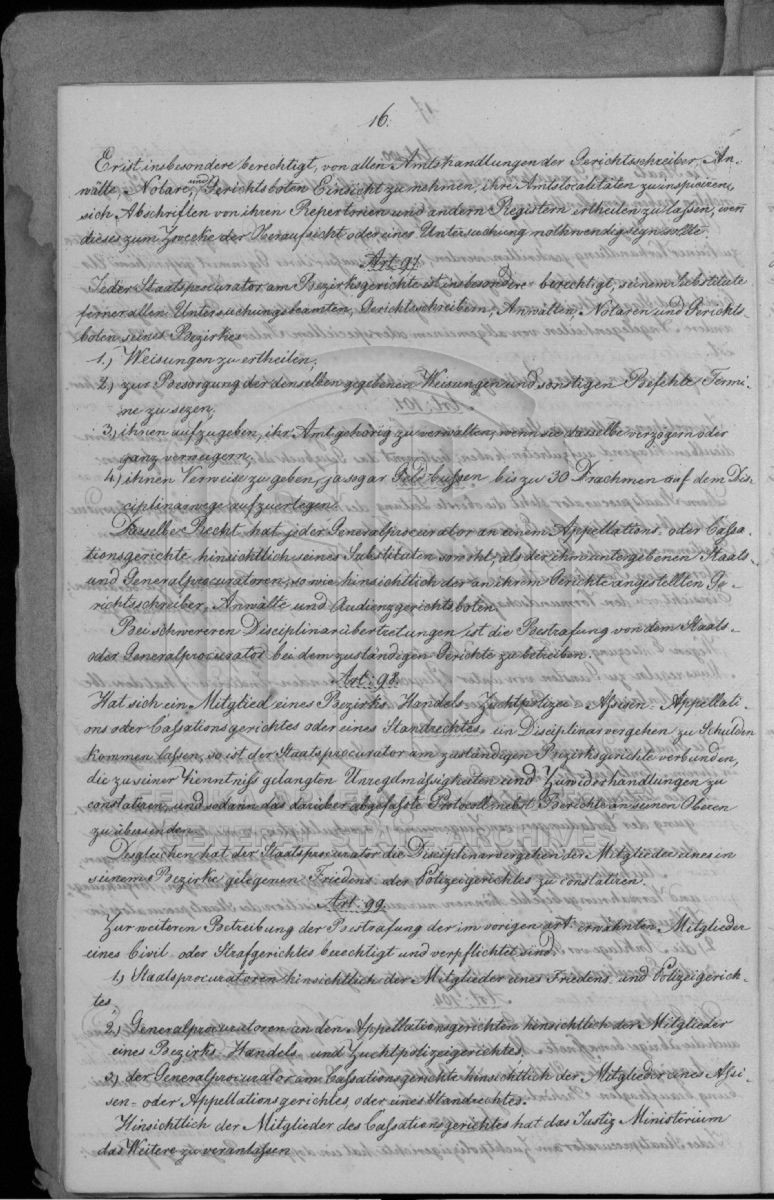 16.
Er ist insbesondere berechtigt, von allen Amtshandlungen der Gerichtsschreiber, An-
wälte, Notare, und Gerichtsboten Einsicht zu nehmen, ihre Amtslocalitäten zu inspiciren,
sich Abschriften von ihren Repertorien und andern Registern ertheilen zu lassen, weñ
dieses zum Zwecke der Oberaufsicht oder einer Untersuchung nothwendig seyn sollte.
Art. 97.
Jeder Staatsprocurator am Bezirksgerichte ist insbesondere berechtigt, seinem Substitute
ferner allen Untersuchungsbeamten, Gerichtsschreibern, Anwälten, Notaren und Gerichts-
boten seines Bezirkes
1.) Weisungen zu ertheilen,
2.) zur Besorgung der denselben gegebenen Weisungen und sonstigen Befehle Termi-
ne zu sezen,
3.) ihnen aufzugeben, ihr Amt gehörig zu verwalten, wenn sie dasselbe verzögern oder
ganz verweigern,
4.) ihnen Verweise zu geben, ja sogar Geldbußen bis zu 30 Drachmen auf dem Dis-
ciplinarwege aufzuerlegen.
Dasselbe Recht hat jeder Generalprocurator an einem Appellations- oder Cassa-
tionsgerichte hinsichtlich seines Substituten sowohl, als der ihm untergebenen Staats-
und Generalprocuratoren, so wie hinsichtlich der an ihrem Gerichte angestellten Ge-
richtsschreiber, Anwälte und Audienzgerichtsboten.
Bei schwereren Disciplinarübertretungen ist die Bestrafung von dem Staats-
oder Generalprocurator bei dem zuständigen Gerichte zu betreiben.
Art. 98.
Hat sich ein Mitglied eines Bezirks- Handels- Zuchtpolizei- Assisen- Appellati-
ons oder Cassationsgerichtes oder eines Standrechtes ein Disciplinarvergehen zu Schulden
kommen lassen, so ist der Staatsprocurator am zuständigen Bezirksgerichte verbunden,
die zu seiner Kenntniss gelangten Unregelmäsigkeiten und Zuwiderhandlungen zu
constatiren, und sodann das darüber abgefasste Protocoll nebst Bericht an seinen Oberen
zu übersenden.
Desgleichen hat der Staatsprocurator die Disciplinarvergehen der Mitglieder eines in
seinem Bezirke gelegenen Friedens- oder Polizeigerichtes zu constatiren.
Art. 99.
Zur weiteren Betreibung der Bestrafung der im vorigen art. erwähnten Mitglieder
eines Civil- oder Strafgerichtes berechtigt und verpflichtet sind:
1.) Staatsprocuratoren hinsichtlich der Mitglieder eines Friedens- und Polizeigerich-
tes,
2.) Generalprocuratoren an den Appellationsgerichten hinsichtlich der Mitglieder
eines Bezirks- Handels- und Zuchtpolizeigerichtes.
3.) der Generalprocurator am Cassationsgerichte hinsichtlich der Mitglieder eines Assi-
sen- oder Appellationsgerichtes, oder eines Standrechtes.
Hinsichtlich der Mitglieder des Cassationsgerichtes hat das Justiz Ministerium
das Weitere zu veranlassen